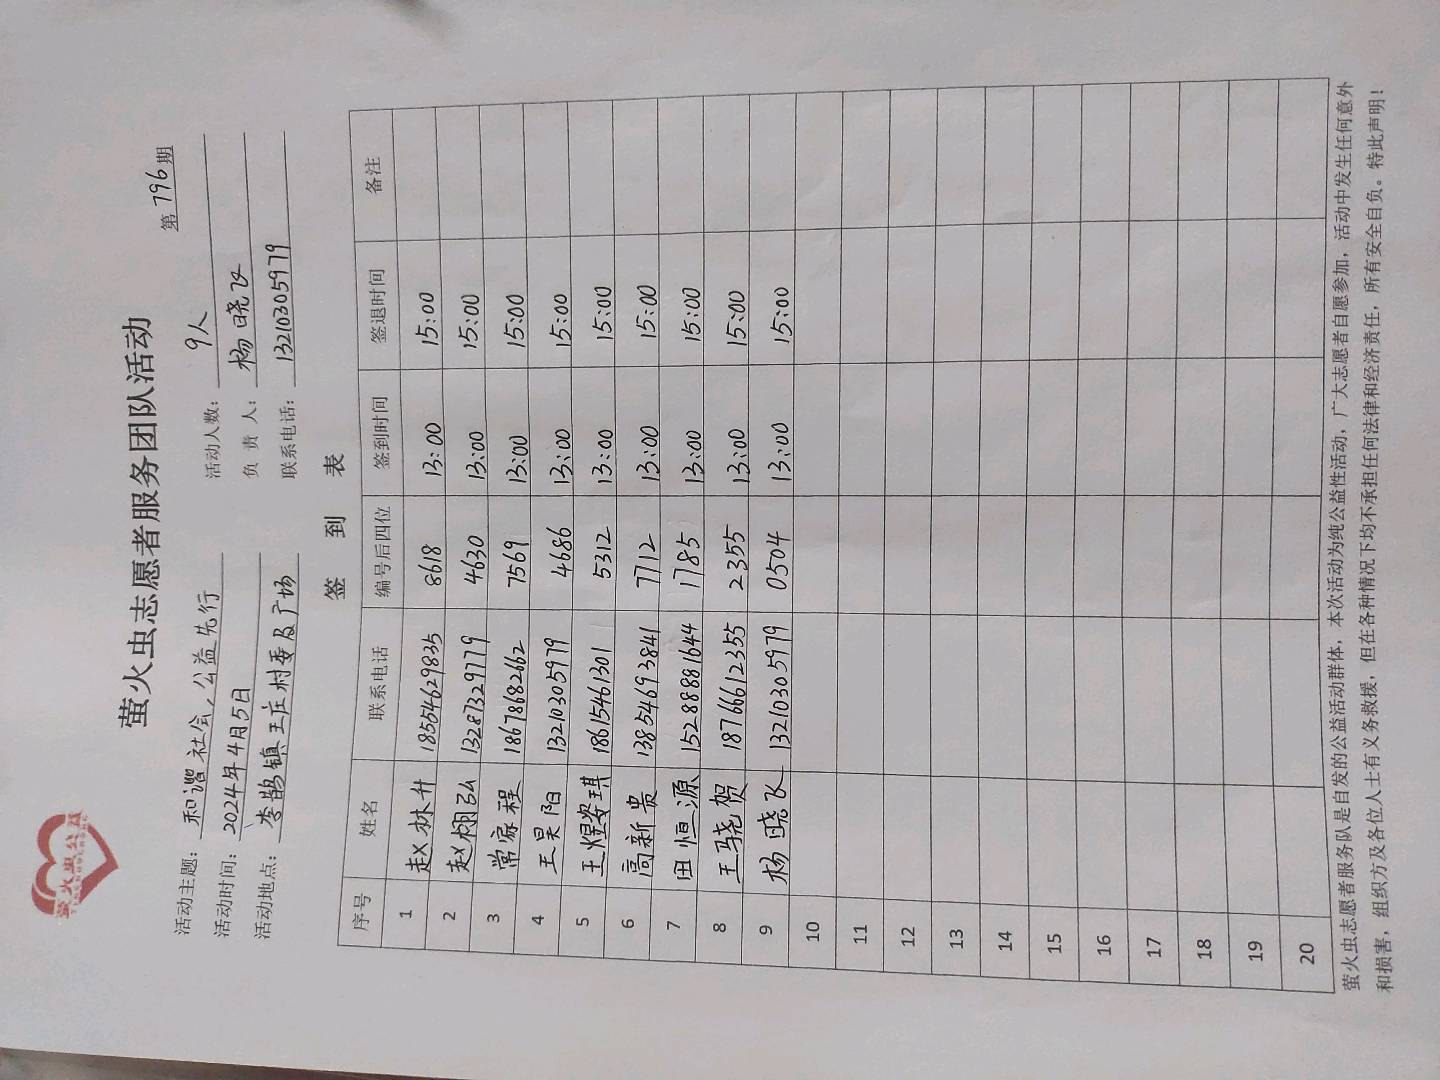 萤火虫公益
萤火虫志愿者服务团队活动
第796期
活动主题：和谐社会，公益先行 活动人数：9人
活动时间：2024年4月5日 负责人：杨晓飞
活动地点：李鹊镇王庄村委及广场 联系电话：13210305979
签到表
序号 姓名 联系电话 编号后四位 签到时间 签退时间 备注
1 赵林升 18554629835 8618 13:00 15:00
2 赵栩弘 13281329779 4630 13:00 15:00
3 常家程 18678682662 7569 13:00 15:00
4 王昊阳 13210305979 4686 13:00 15:00
5 王煜姿琪 18615461301 5312 13:00 15:00
6 高新贵 13854693841 7712 13:00 15:00
7 田恒源 15288881644 1785 13:00 15:00
8 王骁贺 18766612355 2355 13:00 15:00
9 杨晓飞 13210305979 0504 13:00 15:00
10
11
12
13
14
15
16
17
18
19
20
萤火虫志愿者服务队是自发的公益活动群体，本次活动为纯公益性活动，广大志愿者自愿参加，活动中发生任何意外
和损害，组织方及各位人士有义务救援，但在各种情况下均不承担任何法律和经济责任，所有安全自负。特此声明！